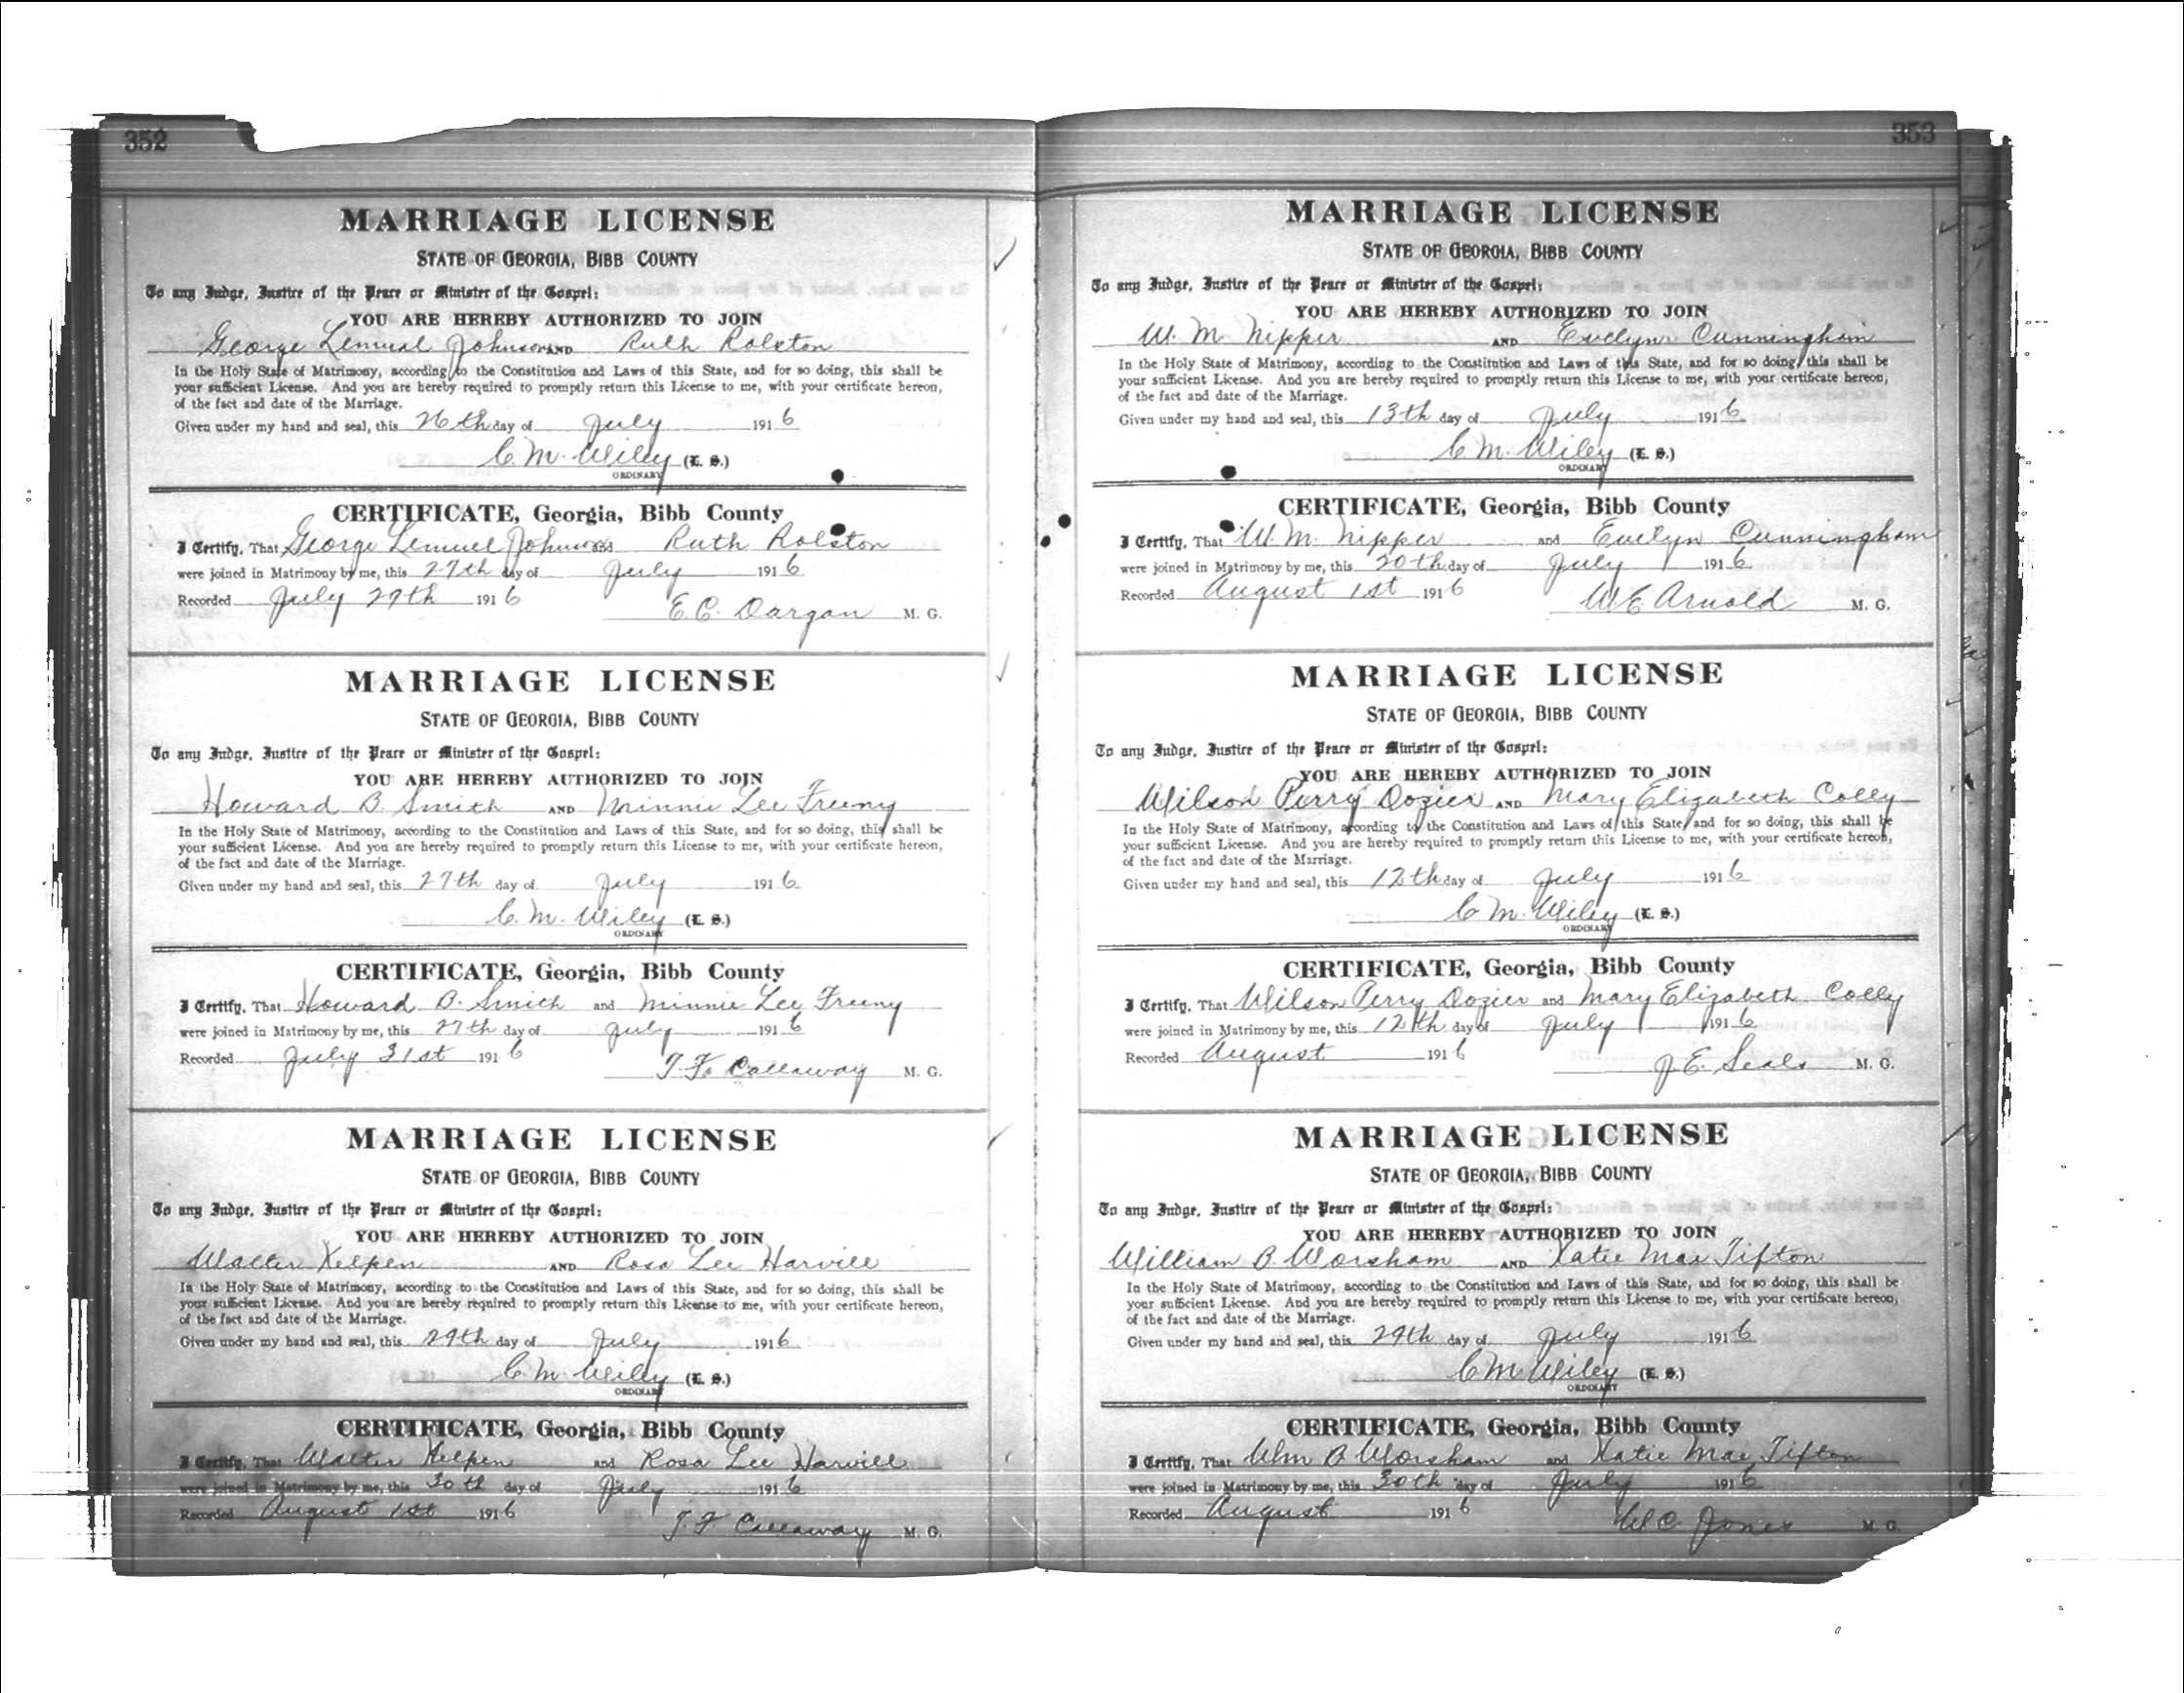 352
MARRIAGE LICENSE
STATE OF GEORGIA, BIBB COUNTY
To any Judge, Justice of the Peace or Minister of the Gospel:
YOU ARE HEREBY AUTHORIZED TO JOIN
George Lemual Johnson AND Ruth Ralston
In the Holy State of Matrimony, according to the Constitution and Laws of this State, and for so doing, this shall be
your sufficient License. And you are hereby required to promptly return this License to me, with your certificate hereon,
of the fact and date of the Marriage.
Given under my hand and seal, this 26th day of July 1916
C. M. Wiley (L. S.)
ORDINARY
CERTIFICATE, Georgia, Bibb County
I Certify, That George Lemuel Johnson and Ruth Ralston
were joined in Matrimony by me, this 27th day of July 1916
Recorded July 29th 1916
E. C. Dargan M. G.
MARRIAGE LICENSE
STATE OF GEORGIA, BIBB COUNTY
To any Judge, Justice of the Peace or Minister of the Gospel:
YOU ARE HEREBY AUTHORIZED TO JOIN
Howard B. Smith AND Minnie Lee Freeny
In the Holy State of Matrimony, according to the Constitution and Laws of this State, and for so doing, this shall be
your sufficient License. And you are hereby required to promptly return this License to me, with your certificate hereon,
of the fact and date of the Marriage.
Given under my hand and seal, this 27th day of July 1916
C. M. Wiley (L. S.)
ORDINARY
CERTIFICATE, Georgia, Bibb County
I Certify, That Howard B. Smith and Minnie Lee Freeny
were joined in Matrimony by me, this 27th day of July 1916
Recorded July 31st 1916
T. F. Callaway M. G.
MARRIAGE LICENSE
STATE OF GEORGIA, BIBB COUNTY
To any Judge, Justice of the Peace or Minister of the Gospel:
YOU ARE HEREBY AUTHORIZED TO JOIN
Walter Kelpen AND Rosa Lee Harvill
In the Holy State of Matrimony, according to the Constitution and Laws of this State, and for so doing, this shall be
your sufficient License. And you are hereby required to promptly return this License to me, with your certificate hereon,
of the fact and date of the Marriage.
Given under my hand and seal, this 29th day of July 1916
C. M. Wiley (L. S.)
ORDINARY
CERTIFICATE, Georgia, Bibb County
I Certify, That Walter Kelpen and Rosa Lee Harvill
were joined in Matrimony by me, this 30th day of July 1916
Recorded August 1st 1916
T. F. Callaway M. G.
353
MARRIAGE LICENSE
STATE OF GEORGIA, BIBB COUNTY
To any Judge, Justice of the Peace or Minister of the Gospel:
YOU ARE HEREBY AUTHORIZED TO JOIN
W. M. Nipper AND Evelyn Cunningham
In the Holy State of Matrimony, according to the Constitution and Laws of this State, and for so doing, this shall be
your sufficient License. And you are hereby required to promptly return this License to me, with your certificate hereon,
of the fact and date of the Marriage.
Given under my hand and seal, this 13th day of July 1916
C. M. Wiley (L. S.)
ORDINARY
CERTIFICATE, Georgia, Bibb County
I Certify, That W. M. Nipper and Evelyn Cunningham
were joined in Matrimony by me, this 20th day of July 1916
Recorded August 1st 1916
W. E. Arnold M. G.
MARRIAGE LICENSE
STATE OF GEORGIA, BIBB COUNTY
To any Judge, Justice of the Peace or Minister of the Gospel:
YOU ARE HEREBY AUTHORIZED TO JOIN
Wilson Perry Dozier AND Mary Elizabeth Colly
In the Holy State of Matrimony, according to the Constitution and Laws of this State, and for so doing, this shall be
your sufficient License. And you are hereby required to promptly return this License to me, with your certificate hereon,
of the fact and date of the Marriage.
Given under my hand and seal, this 12th day of July 1916
C. M. Wiley (L. S.)
ORDINARY
CERTIFICATE, Georgia, Bibb County
I Certify, That Wilson Perry Dozier and Mary Elizabeth Colly
were joined in Matrimony by me, this 12th day of July 1916
Recorded August 1916
J. E. Seals M. G.
MARRIAGE LICENSE
STATE OF GEORGIA, BIBB COUNTY
To any Judge, Justice of the Peace or Minister of the Gospel:
YOU ARE HEREBY AUTHORIZED TO JOIN
William B. Worsham AND Katie Mae Tifton
In the Holy State of Matrimony, according to the Constitution and Laws of this State, and for so doing, this shall be
your sufficient License. And you are hereby required to promptly return this License to me, with your certificate hereon,
of the fact and date of the Marriage.
Given under my hand and seal, this 29th day of July 1916
C. M. Wiley (L. S.)
ORDINARY
CERTIFICATE, Georgia, Bibb County
I Certify, That Whm B Worsham and Katie Mae Tifton
were joined in Matrimony by me, this 30th day of July 1916
Recorded August 1916
W. C. Jones M. G.